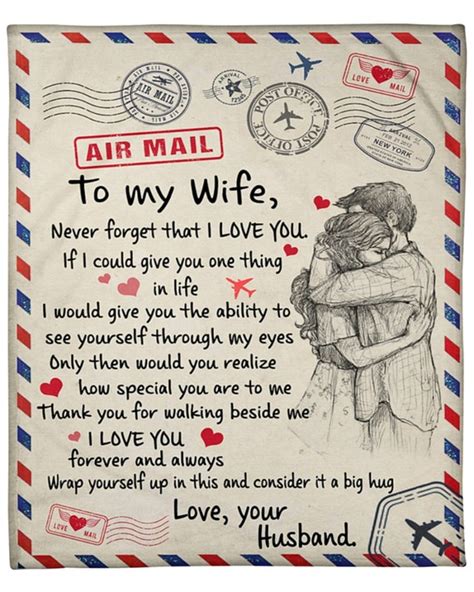 AIR MAIL
ARRIVAL
POST OFFICE
POST OFFICE
LOVE MAIL
NEW YORK
AIR MAIL
To my Wife,
Never forget that I LOVE YOU.
If I could give you one thing
in life
I would give you the ability to
see yourself through my eyes
Only then would you realize
how special you are to me
Thank you for walking beside me
I LOVE YOU
forever and always
Wrap yourself up in this and consider it a big hug
Love, your
Husband.
LOVE MAIL